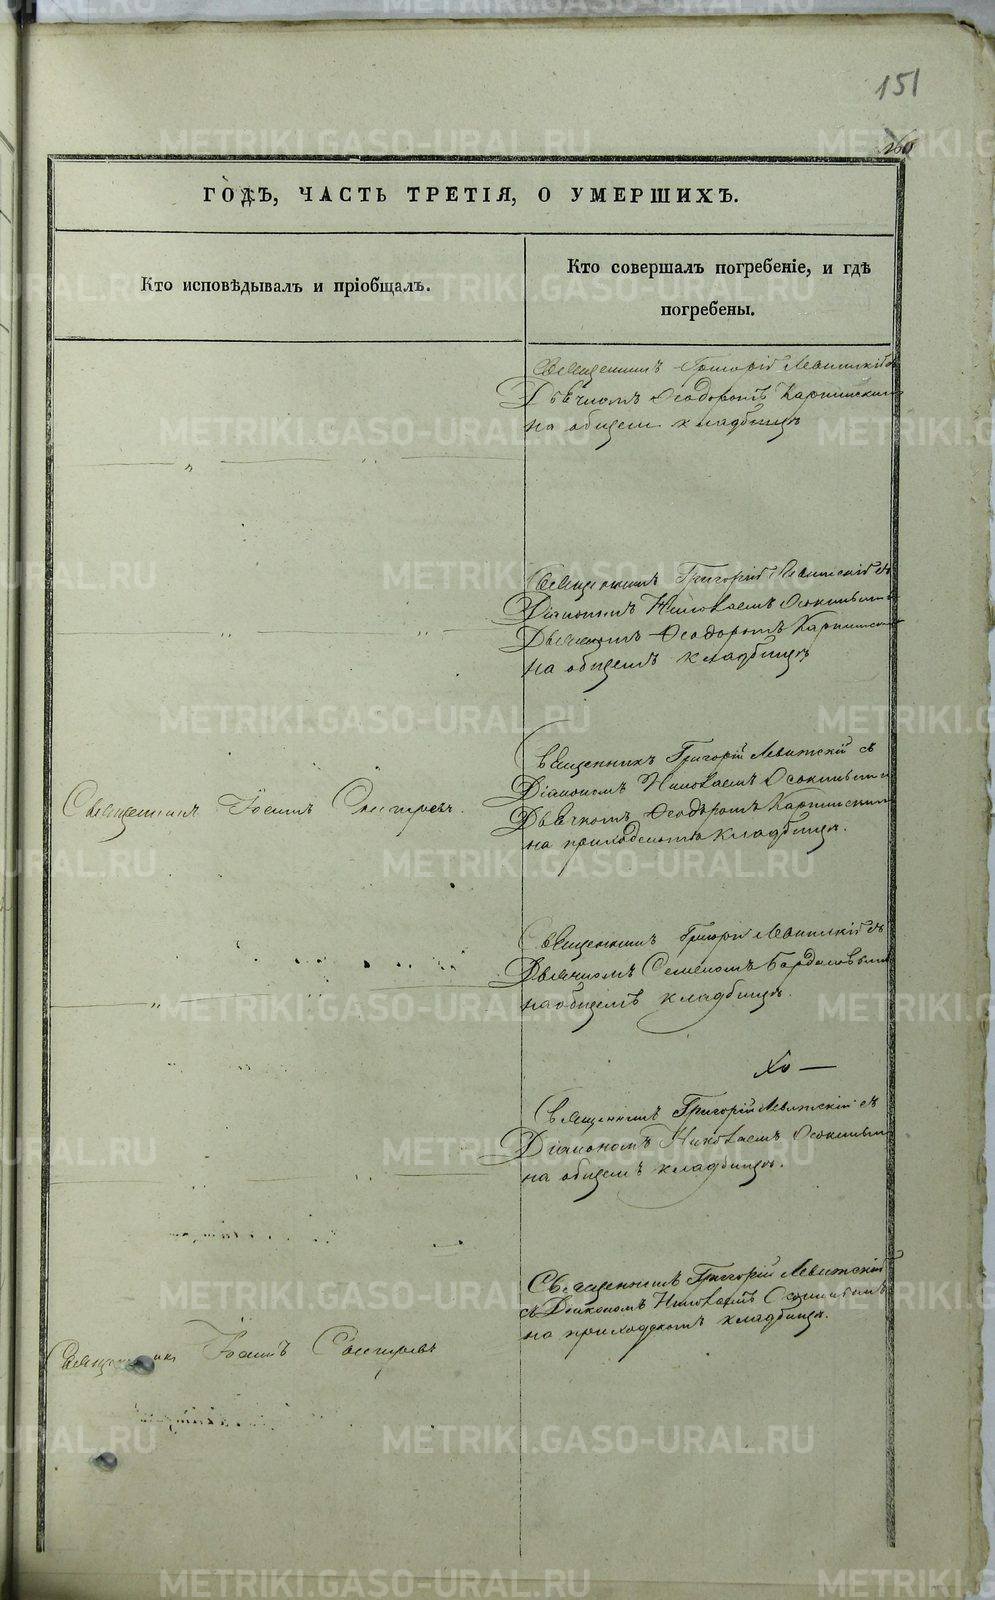 151
260
ГОДЪ, ЧАСТЬ ТРЕТІЯ, О УМЕРШИХЪ.
Кто исповѣдывалъ и пріобщалъ.
Кто совершалъ погребеніе, и гдѣ
погребены.
Священникъ Григорій Левитскій съ
Дьячкомъ Ѳеодоромъ Карпинскимъ
на общемъ кладбищѣ
Священникъ Григорій Левитскій съ
Діакономъ Николаемъ
Дьячкомъ Ѳеодоромъ Карпинскимъ
на общемъ кладбищѣ
Священникъ Іоаннъ
Священникъ Григорій Левитскій съ
Діакономъ Николаемъ
Дьячкомъ Ѳеодоромъ Карпинскимъ
на приходскомъ кладбищѣ.
Священникъ Григорій Левитскій съ
Дьячкомъ Семеномъ
на общемъ кладбищѣ.
Священникъ Григорій Левитскій съ
Діакономъ Николаемъ
на общемъ кладбищѣ.
Священникъ Григорій Левитскій
съ Діакономъ Николаемъ
на приходскомъ кладбищѣ.
Священникъ Іоаннъ
METRIKI.GASO-URAL.RU